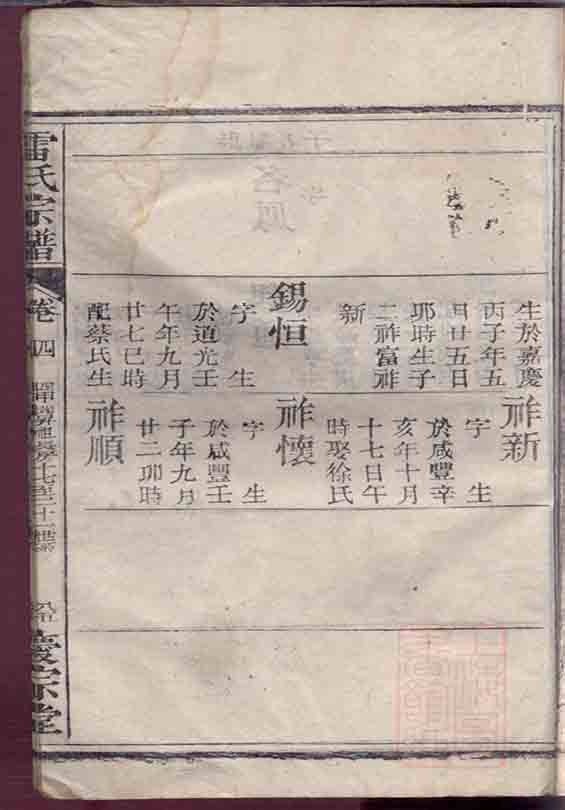 生於嘉慶
丙子年五
月廿五日
卯時生子
二祚富祚
新
錫恒
字 生
於道光壬
午年九月
廿七巳時
配蔡氏生
祚新
字 生
於咸豐辛
亥年十月
十七日午
時娶徐氏
祚懷
字 生
於咸豐壬
子年九月
廿二卯時
祚順
雷氏宗譜
卷四
慶宗堂